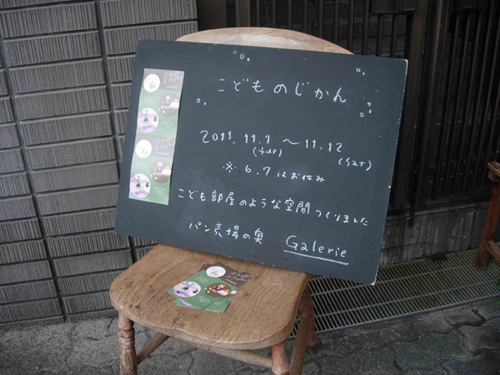 こどものじかん
2011.11.1 〜 11.12
(tue) (sat)
※ 6.7 はお休み
こども部屋のような空間つくりました
パン売場の奥 Galerie